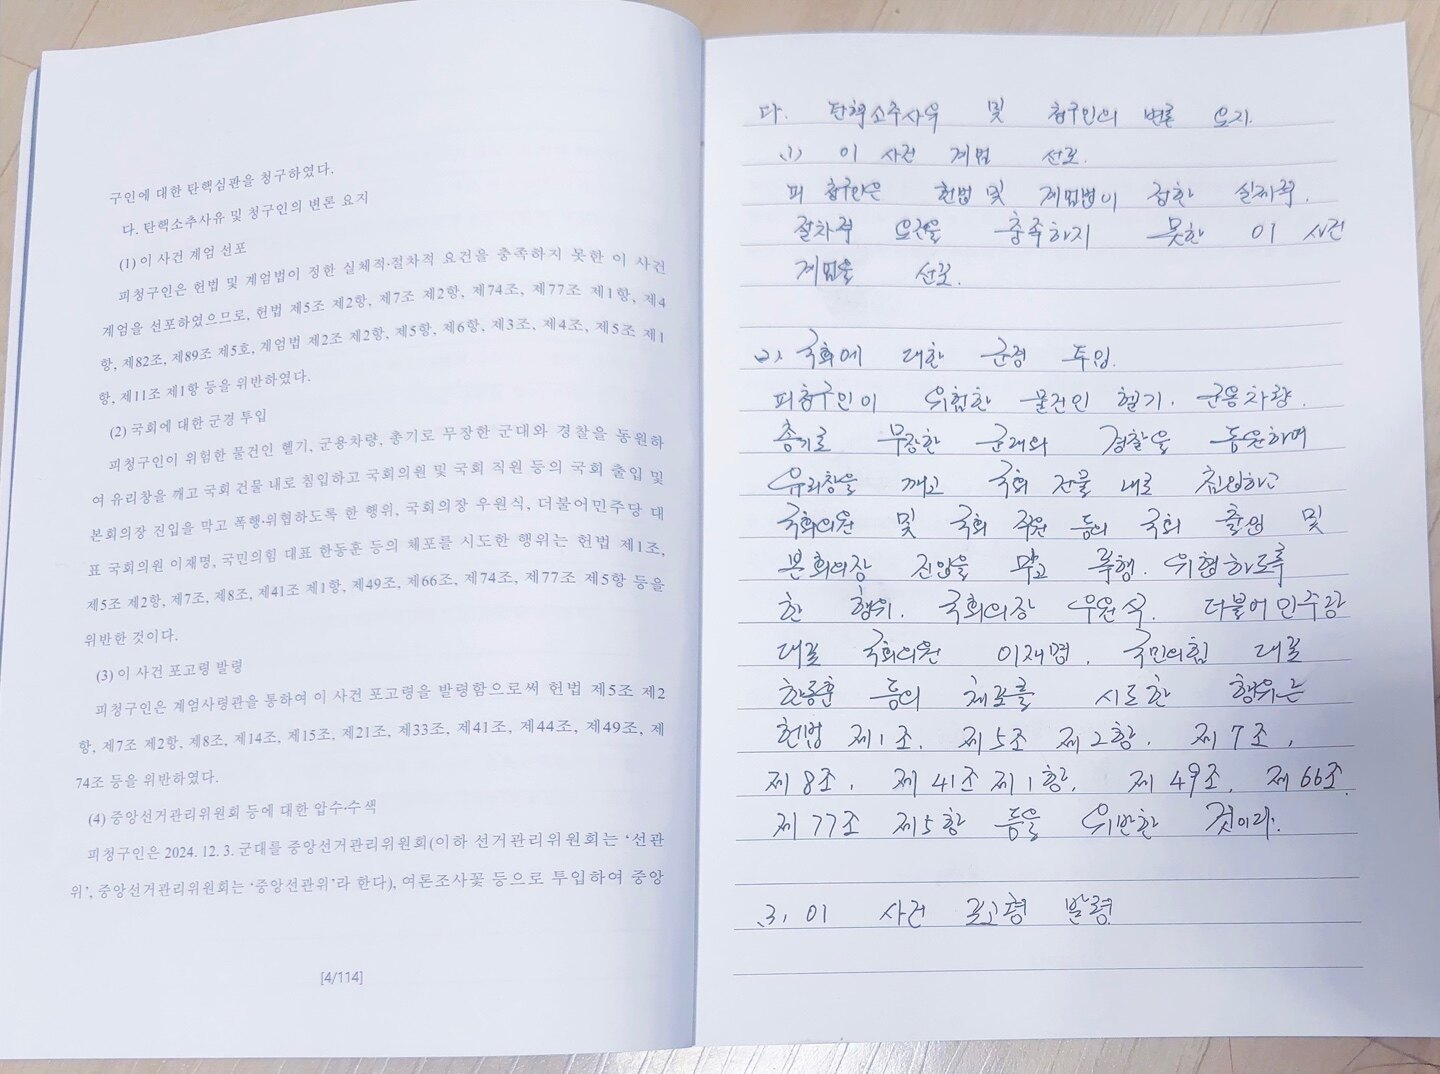 구인에 대한 탄핵심판을 청구하였다.
다. 탄핵소추사유 및 청구인의 변론 요지
(1) 이 사건 계엄 선포
피청구인은 헌법 및 계엄법이 정한 실체적·절차적 요건을 충족하지 못한 이 사건
계엄을 선포하였으므로, 헌법 제5조 제2항, 제7조 제2항, 제74조, 제77조 제1항, 제4
항, 제82조, 제89조 제5호, 계엄법 제2조 제2항, 제5항, 제6항, 제3조, 제4조, 제5조 제1
항, 제11조 제1항 등을 위반하였다.
(2) 국회에 대한 군경 투입
피청구인이 위험한 물건인 헬기, 군용차량, 총기로 무장한 군대와 경찰을 동원하
여 유리창을 깨고 국회 건물 내로 침입하고 국회의원 및 국회 직원 등의 국회 출입 및
본회의장 진입을 막고 폭행·위협하도록 한 행위, 국회의장 우원식, 더불어민주당 대
표 국회의원 이재명, 국민의힘 대표 한동훈 등의 체포를 시도한 행위는 헌법 제1조,
제5조 제2항, 제7조, 제8조, 제41조 제1항, 제49조, 제66조, 제74조, 제77조 제5항 등을
위반한 것이다.
(3) 이 사건 포고령 발령
피청구인은 계엄사령관을 통하여 이 사건 포고령을 발령함으로써 헌법 제5조 제2
항, 제7조 제2항, 제8조, 제14조, 제15조, 제21조, 제33조, 제41조, 제44조, 제49조, 제
74조 등을 위반하였다.
(4) 중앙선거관리위원회 등에 대한 압수·수색
피청구인은 2024. 12. 3. 군대를 중앙선거관리위원회(이하 선거관리위원회는 ‘선관
위’, 중앙선거관리위원회는 ‘중앙선관위’라 한다), 여론조사꽃 등으로 투입하여 중앙
[4/114]
다. 탄핵소추사유 및 청구인의 변론 요지.
(1) 이 사건 계엄 선포.
피청구인은 헌법 및 계엄법이 정한 실체적.
절차적 요건을 충족하지 못한 이 사건
계엄을 선포.
(2) 국회에 대한 군경 투입.
피청구인이 위험한 물건인 헬기. 군용차량.
총기로 무장한 군대와 경찰을 동원하며
유리창을 깨고 국회 건물 내로 침입하고
국회의원 및 국회 직원 등의 국회 출입 및
본회의장 진입을 막고 폭행. 위협하도록
한 행위. 국회의장 우원식. 더불어민주당
대표 국회의원 이재명. 국민의힘 대표
한동훈 등의 체포를 시도한 행위는
헌법 제1조. 제5조 제2항. 제7조.
제8조. 제41조 제1항. 제49조. 제66조.
제77조 제5항 등을 위반한 것이다.
(3) 이 사건 포고령 발령.